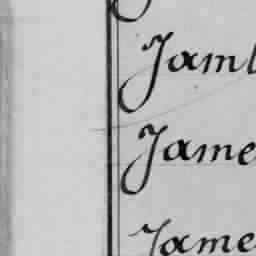 Jaml
Jame
Jame